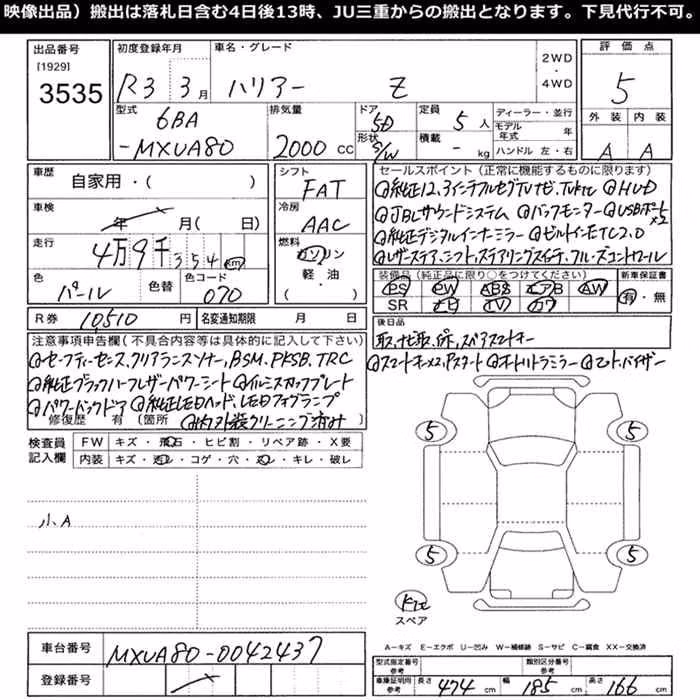 映像出品）搬出は落札日含む4日後13時、JU三重からの搬出となります。下見代行不可。
出品番号 初度登録年月 車名・グレード 評価点
[1929] 2WD
3535 R3 3月 ハリアー Z ・
4WD 5
型式 排気量 ドア 定員 ディーラー・並行 外装 内装
6BA 2000 CC 5D 5人 モデル年式 年
-MXUA80 形状 S/W 積載 - kg ハンドル 左・右 A A
車歴 シフト セールスポイント（正常に機能するものに限ります）
自家用・( ) FAT @純正12.3インチフルセグTVナビ、TVkit @HUD
車検 冷房 @JBLサウンドシステム @バックモニター @USBポート×2
年 月( 日) AAC @純正デジタルインナーミラー @ビルトインETC2.0
走行 燃料 @レザーステア、シフト、ステアリングスイッチ、クルーズコントロール
4万9千354km ガソリン 装備品（純正品に限り○をつけてください） 新車保証書
色 色替 色コード 軽・油 PS PW ABS エアB AW 有・無
パール 070 ( ) SR ナビ TV カワ
R券 10510 円 名変通知期限 月 日 後日品
注意事項申告欄（不具合内容等は具体的に記入して下さい） 取、ナビ取、保、スペアスマートキー
@セーフティーセンス、クリアランスソナー、BSM、PKSB、TRC @スマートキー×2、Pスタート @オートリトラミラー @マット、バイザー
@純正ブラックハーフレザーパワーシート @イルミスカッフプレート
@パワーバックドア @純正LEDヘッド、LEDフォグランプ
修復歴 有（箇所 @内外装クリーニング済み
検査員 FW キズ・飛石・ヒビ割・リペア跡・X要
記入欄 内装 キズ・コゲ・穴・キレ・破レ
5 5
小、A
5 5
スペア
A－キズ E－エクボ U－凹み W－補修跡 S－サビ C－腐食 XX－交換済
車台番号 MXUA80-0042437 型式指定番号 参考 類別区分番号 参考
登録番号 車庫証明用参考 長さ 474 cm 幅 185 cm 高さ 166 cm